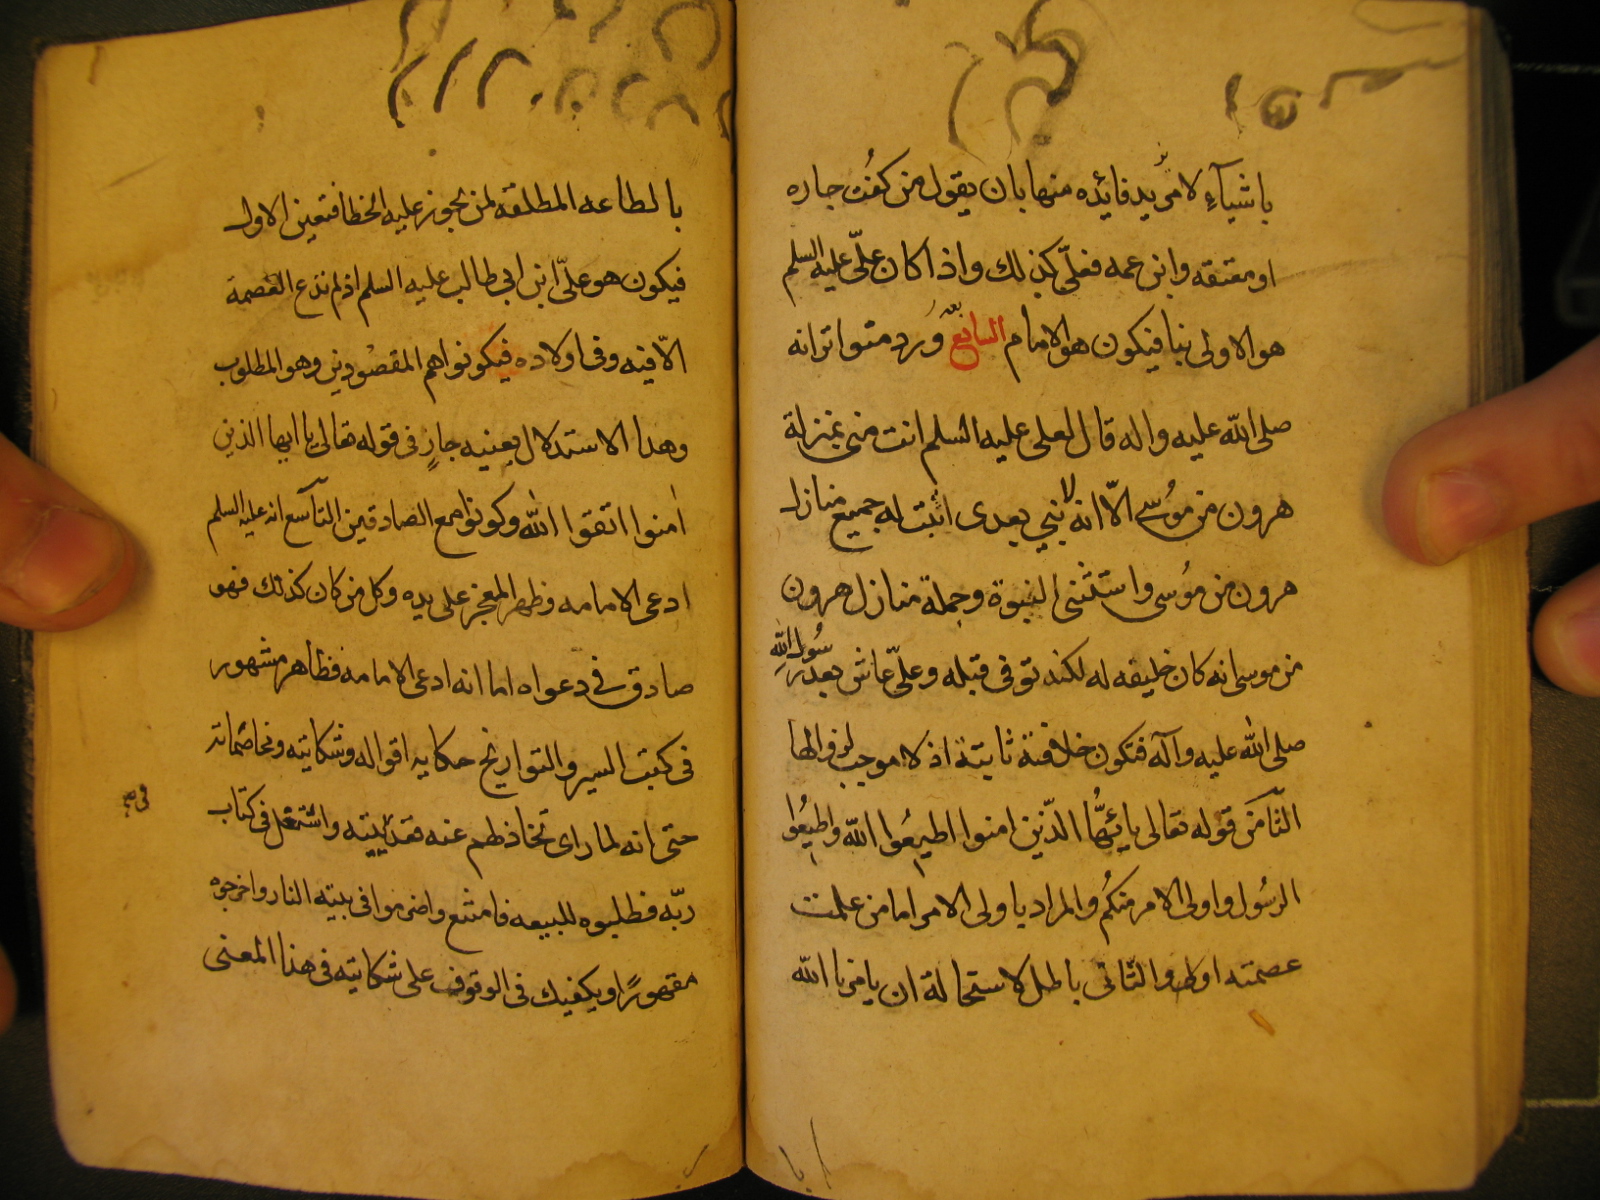 باشياء لا مزيد فايده منها بان يقول من كنت جاره
او معتقه وابن عمه فعلّى كذلك واذا كان علىّ عليه السلم
هو الاولى بنا فيكون هو الامام السابع وَرد متواترا انه
صلى الله عليه واله قال لعلى عليه السلم انت منى بمنزلة
هرون من مُوسى الاّ انه لا نبي بعدى اثبت له جميع منازل
هرون من مُوسى واستثنى النبوة وجملة منازل هرون
من موسى انه كان خليفه له لكنه توفى قبله وعلىّ عاش بعد رسُول الله
صلى الله عليه وآله فتكون خلافته ثابتة اذ لا موجب لزوالها
الثّامَن قوله تعالى يا ايّهُّا الذّين امنوا اطيعُوا الله واطيعُوا
الرسُول واولى الامر منكُم والمراد باولى الامر اما من علمت
عصمته اولا والثانى باطل لاستحالة ان يامرنا الله
بالطاعه المطلقه لمن يجوز عليه الخطا فتعين الاول
فيكون هو علىّ ابن ابي طالب عليه السلم اذ لم تدع العصمة
الاّ فيه وفى اولاده فيكونوا هم المقصُودين وهو المطلوب
وهدا الاستدلال بعنيه جارٍ فى قوله تعالى يا ايها الذين
امنوا اتقوا الله وكونوا مع الصادقين التآسع انه عليه السلم
ادعى الامامه وظهر المعجز على يده وكل من كان كذلك فهو
صادق في دعواه اما انه ادعى الامامه فظاهر مشهور
فى كتب السير والتواريخ حكايه اقواله وشكايته ومخاصماته
حتى انه لما راى تخاذلهم عنه قعد فى بيته واشتغل فى كتاب
ربّه فطلبوه للبيعه فامتنع واضرموا فى بيته النار واخرجوه
مقهورًا ويكفيك فى الوقوف على شكايته فى هذا المعنى